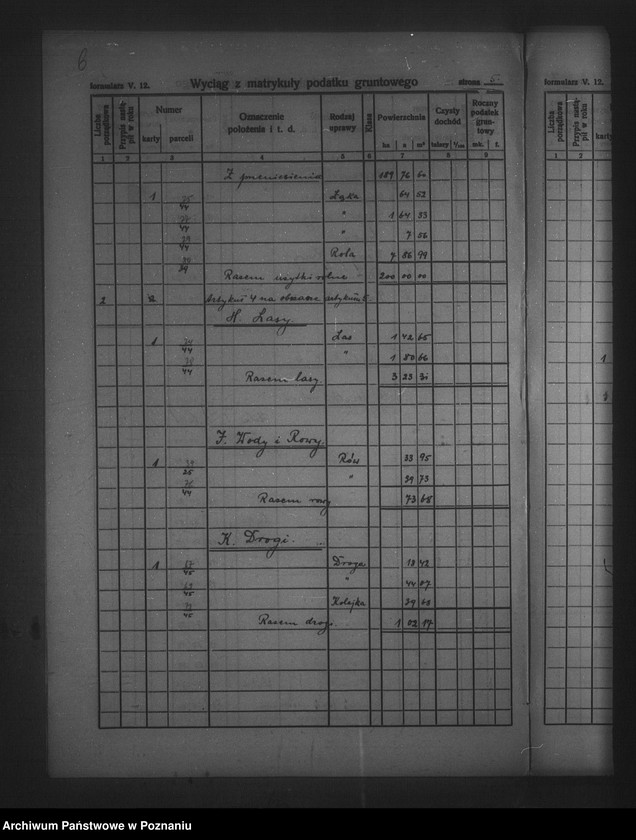 6
formularz V. 12.
Wyciąg z matrykuły podatku gruntowego
strona 5
Liczba porządkowa
Przypis nastąpił w roku
Numer
karty
parceli
Oznaczenie położenia i t. d.
Rodzaj uprawy
Klasa
Powierzchnia
ha a m²
Czysty dochód
talary 1/100
Roczny podatek gruntowy
mk. f.
1 2 3 4 5 6 7 8 9
Z przeniesienia 189 76 60
1 44 Łąka 64 52
44 " 1 64 33
44 " 7 56
39 Rola 7 86 99
Razem użytki rolne 200 00 00
2 Artykuł 4 na obszarze artykułu
H. Lasy.
1 44 Las 1 42 65
44 " 1 80 66
Razem lasy 3 23 31
J. Wody i Rowy.
1 25 Rów 33 95
44 " 39 73
Razem rowy 73 68
K. Drogi.
1 45 Droga 18 42
45 " 44 07
45 Kolejka 39 68
Razem drogi. 1 02 17
formularz V. 12.
Liczba porządkowa
Przypis nastąpił w roku
karty
1 2
1
Archiwum Państwowe w Poznaniu